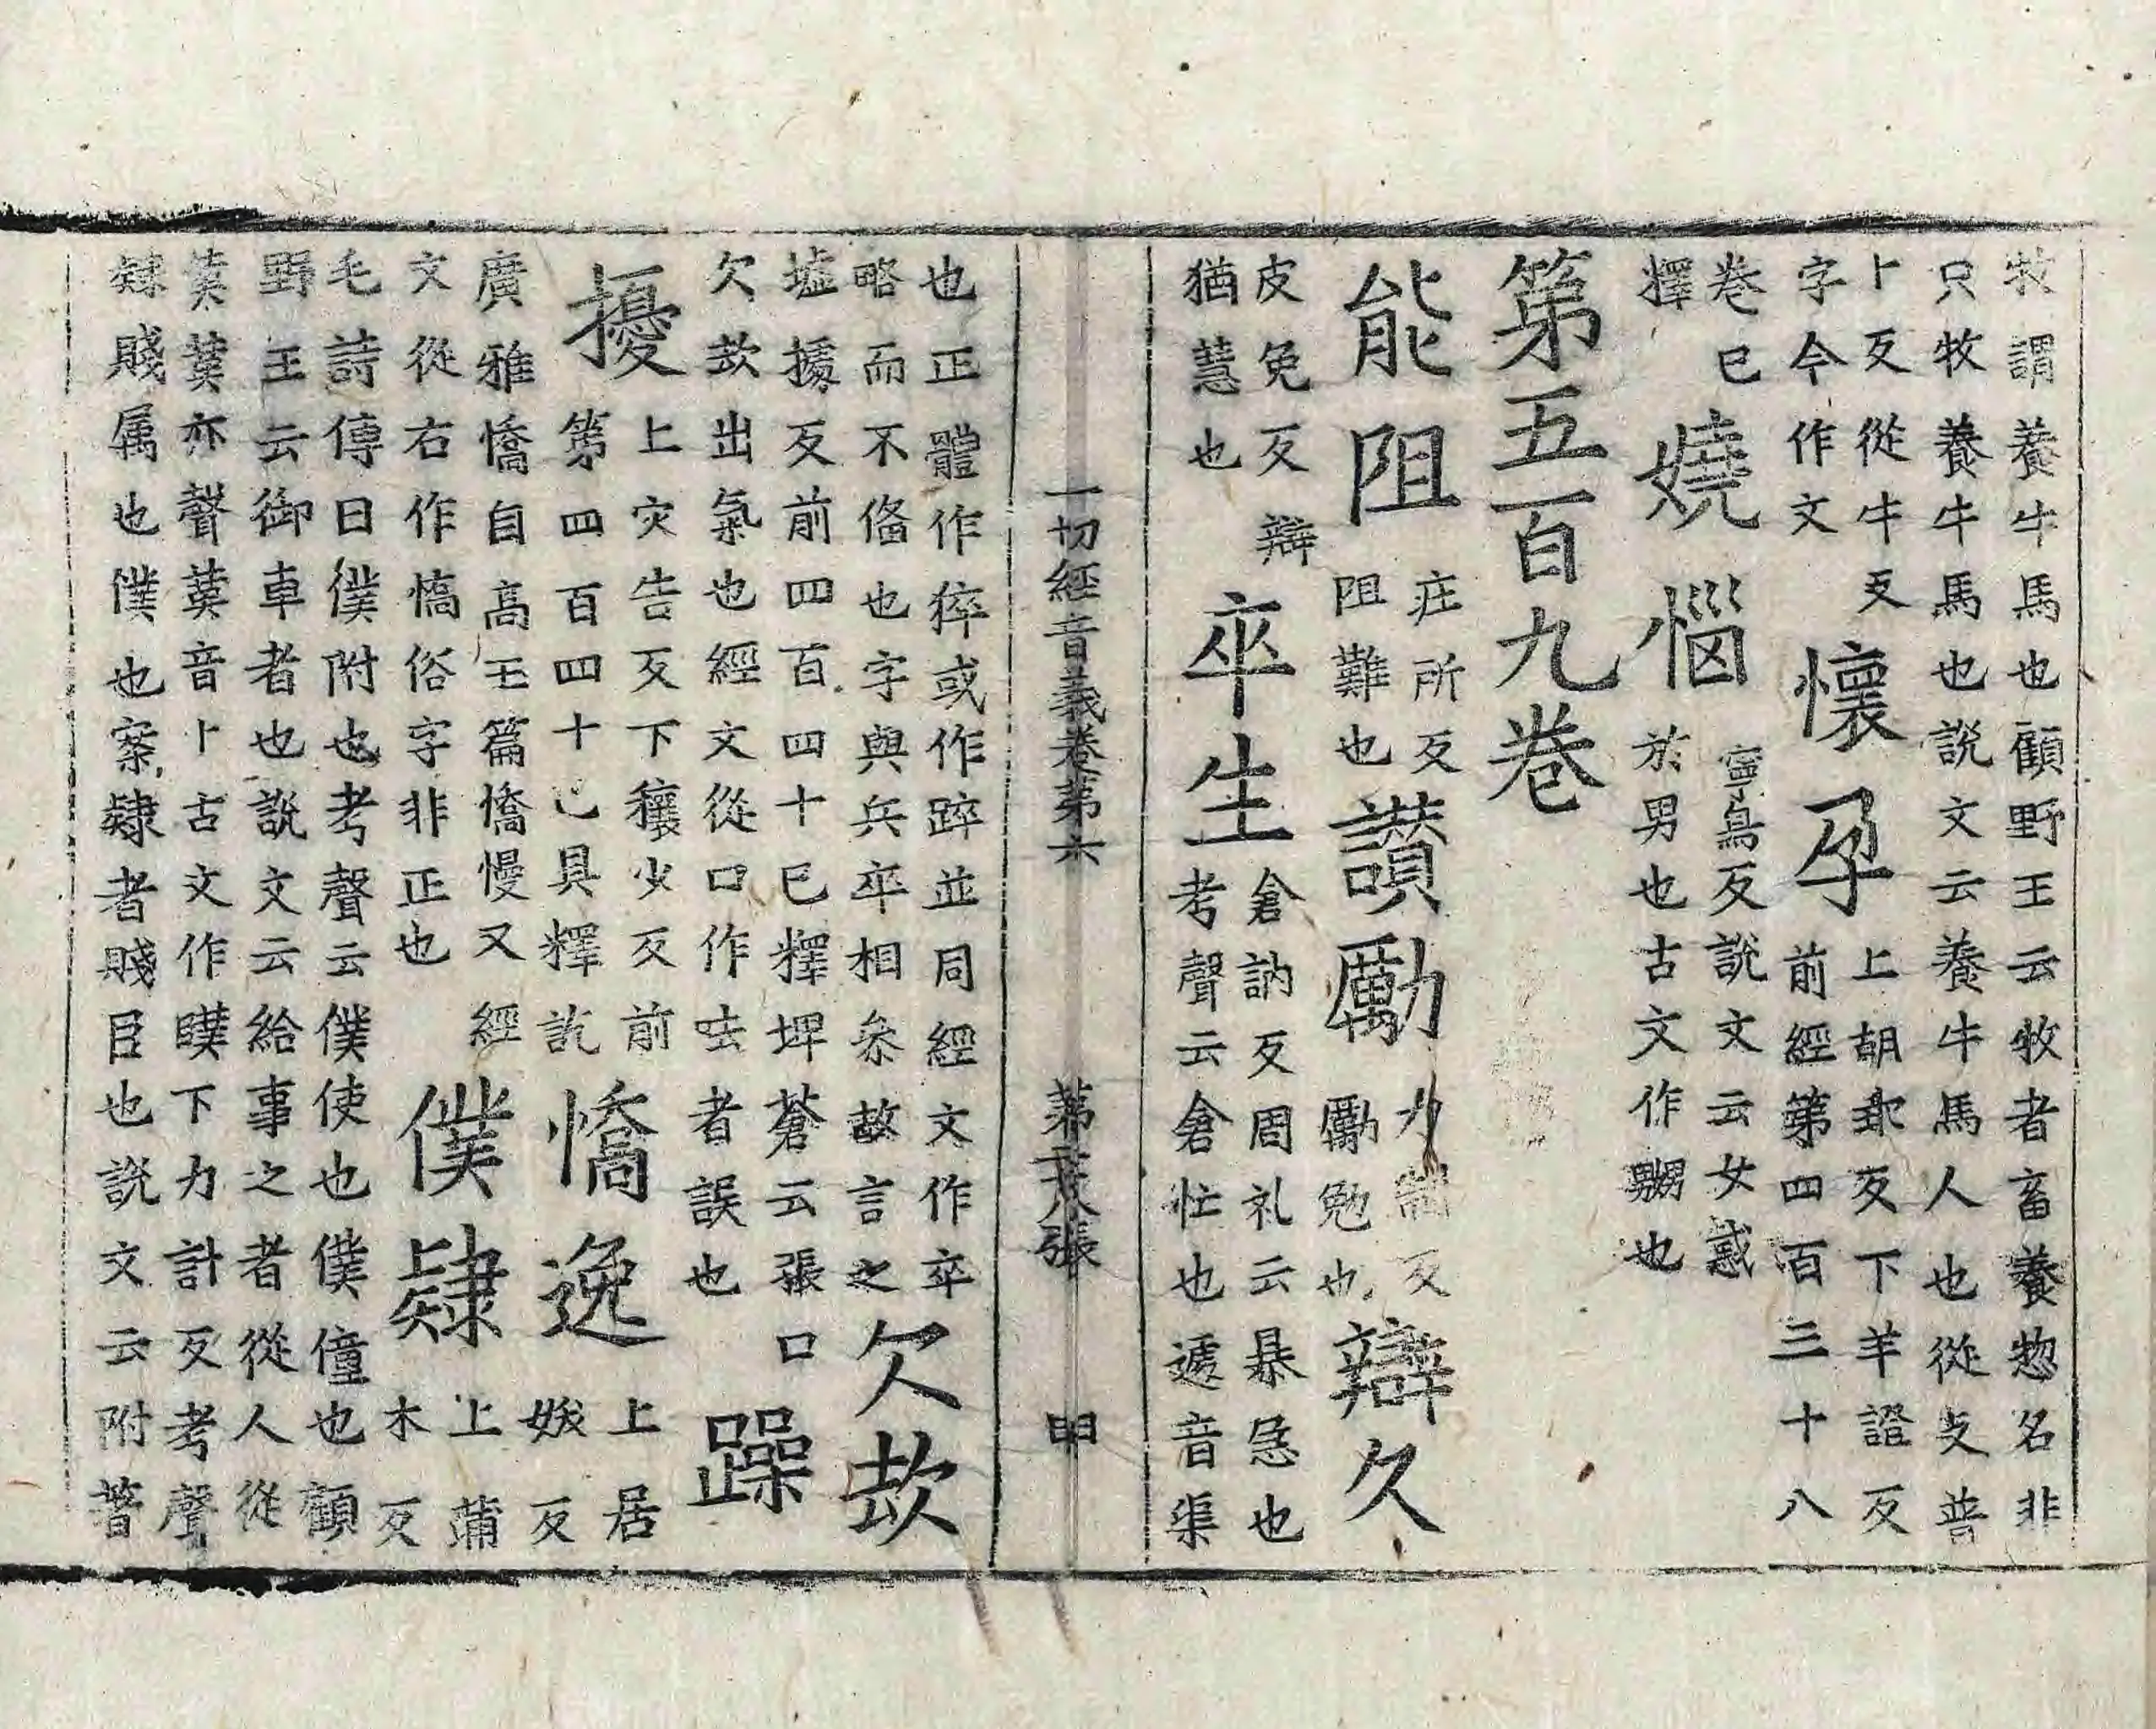 牧謂養牛馬也顧野王云牧者畜養惣名非
只牧養牛馬也說文云養牛馬人也從攴普
卜反從牛攴
字今作文
懷孕
上胡乖反下羊證反
前經第四百三十八
卷已
釋
嬈惱
寧鳥反說文云女戲
於男也古文作嬲也
第五百九卷
能阻
疰所反
阻難也
讚勵
力制反
勵勉也
辯久
皮免反辯
猶慧也
卒生
倉訥反周礼云暴急也
考聲云倉忙也遽音渠
一切經音義卷第六 第二十八張 明
也正體作猝或作踤並同經文作卒
略而不俻也字與兵卒相叅故言之
欠㰦
墟攄反前四百四十巳釋埤蒼云張口
欠㰦出氣也經文從口作呿者誤也
躁
擾
上灾告反下穰少反前
第四百四十已具釋訖
憍逸
上居
妖反
廣雅憍自高玉篇憍慢又經
文從右作㤍俗字非正也
僕隸
上蒲
木反
毛詩傳曰僕附也考聲云僕使也僕僮也顧
野王云御車者也說文云給事之者從人從
菐菐亦聲菐音卜古文作䑑下力計反考聲
隸賤属也僕也案隸者賤臣也說文云附著